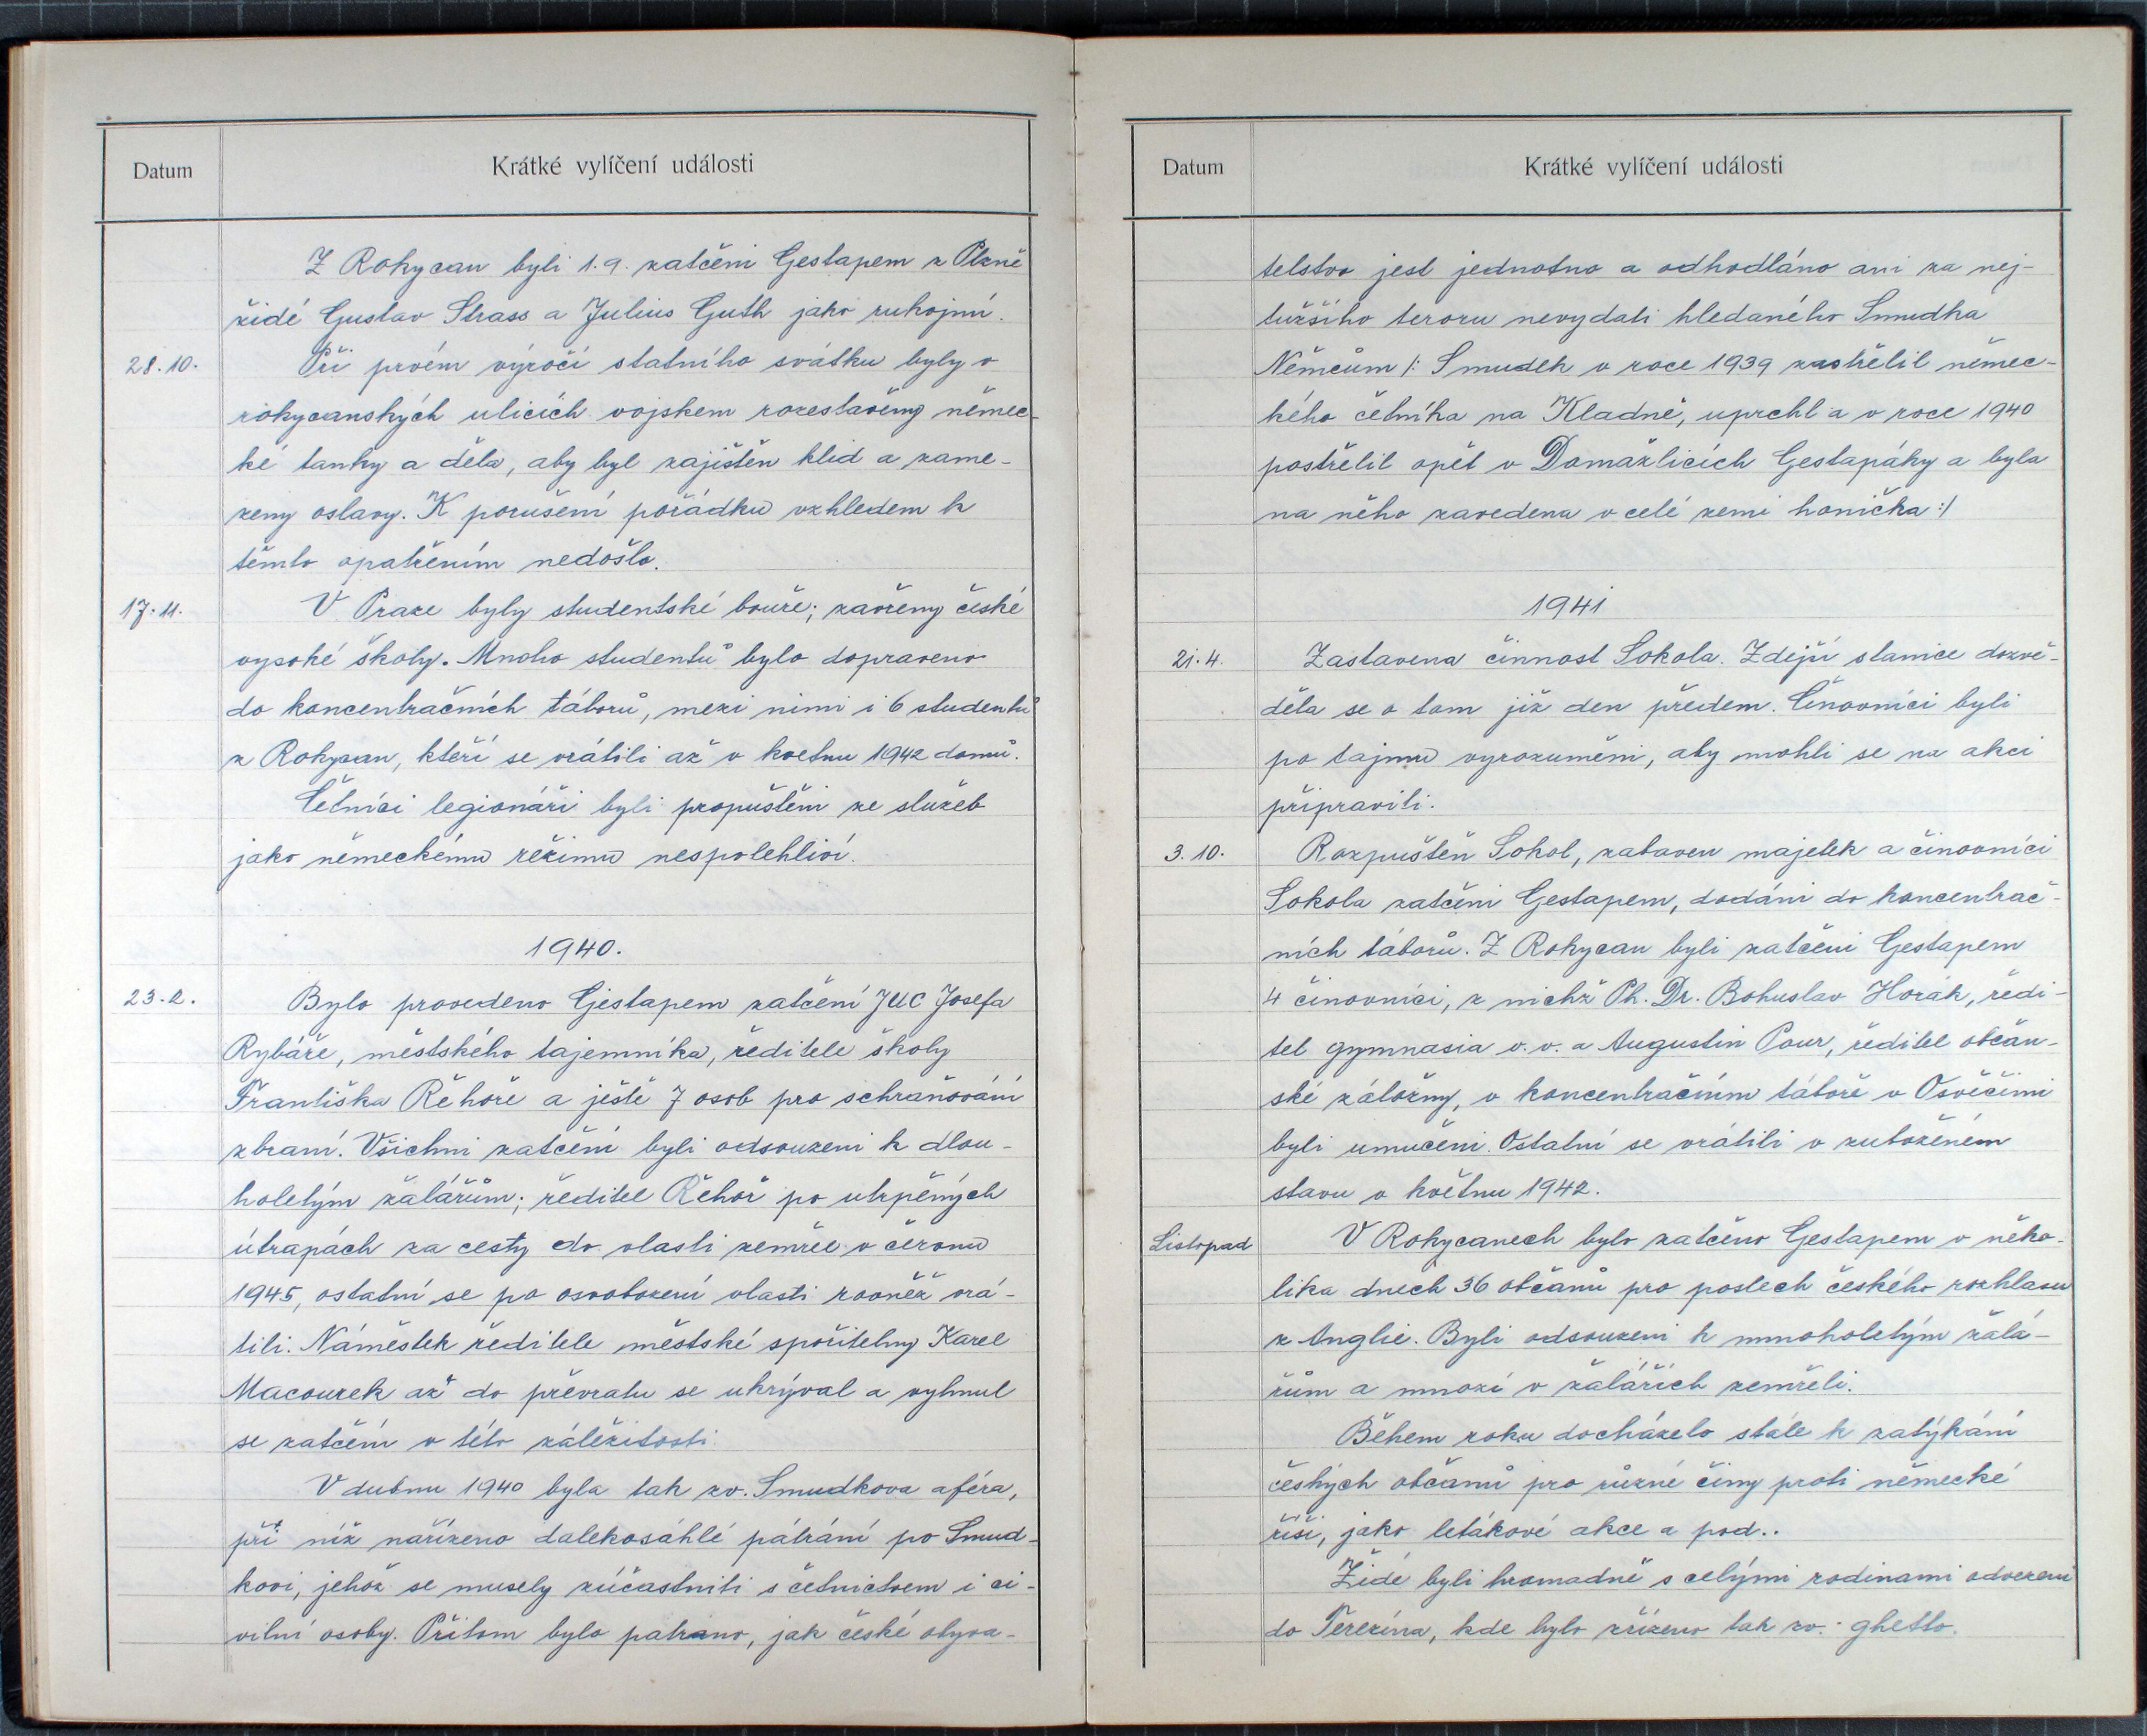 Datum
Krátké vylíčení události
Z Rokycan byli 1.9. zatčeni Gestapem z Plzně
židé Gustav Strass a Julius Guth jako rukojmí.
28.10.
Při prvém výročí statního svátku byly v
rokycanských ulicích vojskem rozestavěny němec-
ké tanky a děla, aby byl zajištěn klid a zame-
zeny oslavy. K porušení pořádku vzhledem k
těmto opatřením nedošlo.
17.11.
V Praze byly studentské bouře; zavřeny české
vysoké školy. Mnoho studentů bylo dopraveno
do koncentračních táborů, mezi nimi i 6 studentů
z Rokycan, kteří se vrátili až v květnu 1942 domů.
Četníci legionáři byli propuštěni ze služeb
jako německému režimu nespolehliví.
1940.
23.2.
Bylo provedeno Gestapem zatčení JUC Josefa
Rybáře, městského tajemníka, ředitele školy
Františka Řehoře a ještě 7 osob pro schraňování
zbraní. Všichni zatčení byli odsouzeni k dlou-
holetým žalářům; ředitel Řehoř po utrpěných
útrapách za cesty do vlasti zemřel v červnu
1945, ostatní se po osvobození vlasti rovněž vrá-
tili. Náměstek ředitele městské spořitelny Karel
Macourek až do převratu se ukrýval a vyhnul
se zatčení v této záležitosti.
V dubnu 1940 byla tak zv. Smudkova aféra,
při níž nařízeno dalekosáhlé pátrání po Smud-
kovi, jehož se musely zúčastniti s četnictvem i ci-
vilní osoby. Přitom bylo patrano, jak české obyva-
Datum
Krátké vylíčení události
telstvo jest jednotno a odhodláno ani za nej-
tužšího teroru nevydati hledaného Smudka
Němcům /: Smudek v roce 1939 zastřelil němec-
kého četníka na Kladně, uprchl a v roce 1940
postřelil opět v Domažlicích Gestapáky a byla
na něho zavedena v celé zemi honička :/
1941
21.4.
Zastavena činnost Sokola. Zdejší stanice dozvě-
děla se o tom již den předem. Činovníci byli
po tajmu vyrozuměni, aby mohli se na akci
připraviti.
3.10.
Rozpuštěn Sokol, zabaven majetek a činovníci
Sokola zatčeni Gestapem, dodáni do koncentrač-
ních táborů. Z Rokycan byli zatčeni Gestapem
4 činovníci, z nichž Ph. Dr. Bohuslav Horák, ředi-
tel gymnasia v.v. a Augustin Pour, ředitel občan-
ské záložny, v koncentračním táboře v Osvěčimi
byli umučeni. Ostatní se vrátili v zuboženém
stavu v květnu 1942.
Listopad
V Rokycanech bylo zatčeno Gestapem v něko-
lika dnech 36 občanů pro poslech českého rozhlasu
z Anglie. Byli odsouzeni k mnoholetým žalá-
řům a mnozí v žalářích zemřeli.
Během roku docházelo stále k zatýkání
českých občanů pro různé činy proti německé
říši, jako letákové akce a pod..
Židé byli hromadně s celými rodinami odvezeni
do Terezína, kde bylo zřízeno tak zv. ghetto.